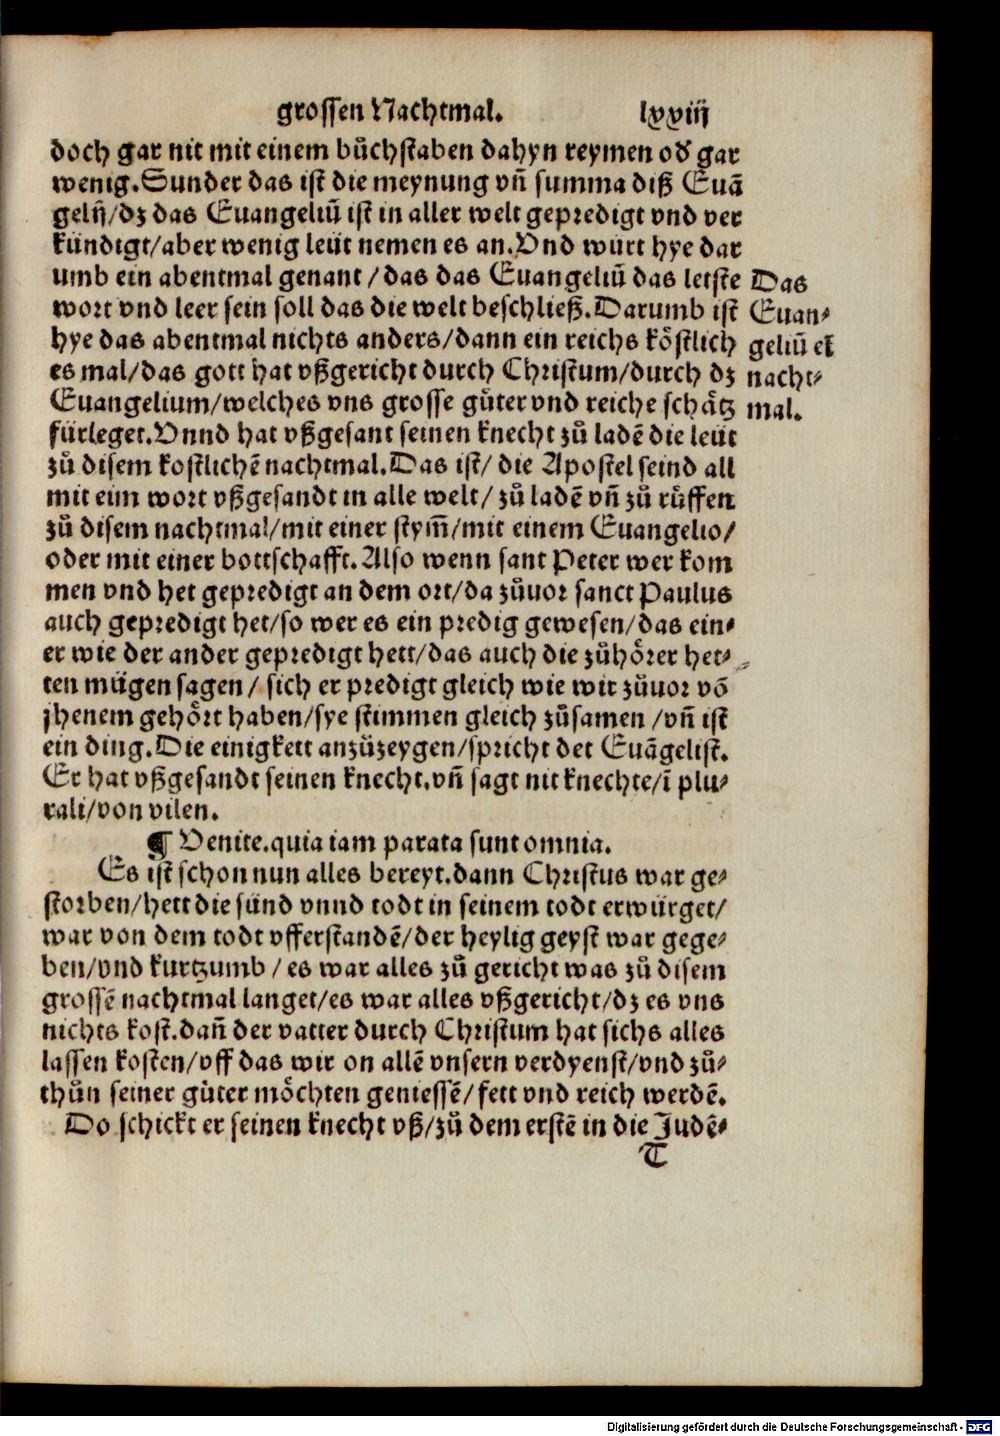 grossen Nachtmal. lxxiij
doch gar nit mit einem bůchstaben dahyn reymen oď gar
wenig. Sunder das ist die meynung vñ summa diß Euã
gelij/dz das Euangeliũ ist in aller welt gepredigt vnd ver
kündigt/aber wenig leüt nemen es an. Vnd würt hye dar
umb ein abentmal genant/das das Euangeliũ das letste
wort vnd leer sein soll das die welt beschließ. Darumb ist
hye das abentmal nichts anders/dann ein reichs köstlich
es mal/das gott hat vßgericht durch Christum/durch dz
Euangelium/welches vns grosse gůter vnd reiche schätz
fürleget. Vnnd hat vßgesant seinen knecht zů ladẽ die leüt
zů disem kostlichẽ nachtmal. Das ist/ die Apostel seind all
mit eim wort vßgesandt in alle welt/ zů ladẽ vñ zů růffen
zů disem nachtmal/mit einer stym̃/mit einem Euangelio/
oder mit einer bottschafft. Also wenn sant Peter wer kom
men vnd het gepredigt an dem ort/da zůuor sanct Paulus
auch gepredigt het/so wer es ein predig gewesen/das ein⸗
er wie der ander gepredigt hett/das auch die zůhörer het⸗
ten mügen sagen/ sich er predigt gleich wie wir zůuor võ
jhenem gehört haben/sye stimmen gleich zůsamen /vñ ist
ein ding. Die einigkett anzůzeygen/spricht det Euãgelist.
Er hat vßgesandt seinen knecht.vñ sagt nit knechte/ĩ plu⸗
rali/von vilen.
¶ Venite.quia iam parata sunt omnia.
Es ist schon nun alles bereyt.dann Christus war ge⸗
storben/hett die sünd vnnd todt in seinem todt erwürget/
war von dem todt vfferstandẽ/der heylig geyst war gege⸗
ben/vnd kurtzumb / es war alles zů gericht was zů disem
grossẽ nachtmal langet/es war alles vßgericht/dz es vns
nichts kost.dañ der vatter durch Christum hat sichs alles
lassen kosten/vff das wir on allẽ vnsern verdyenst/vnd zů⸗
thůn seiner gůter möchten geniessẽ/fett vnd reich werdẽ.
Do schickt er seinen knecht vß/zů dem erstẽ in die Judẽ⸗
T
Das
Euan⸗
geliũ eĩ
nacht⸗
mal.
Digitalisierung gefördert durch die Deutsche Forschungsgemeinschaft - DFG